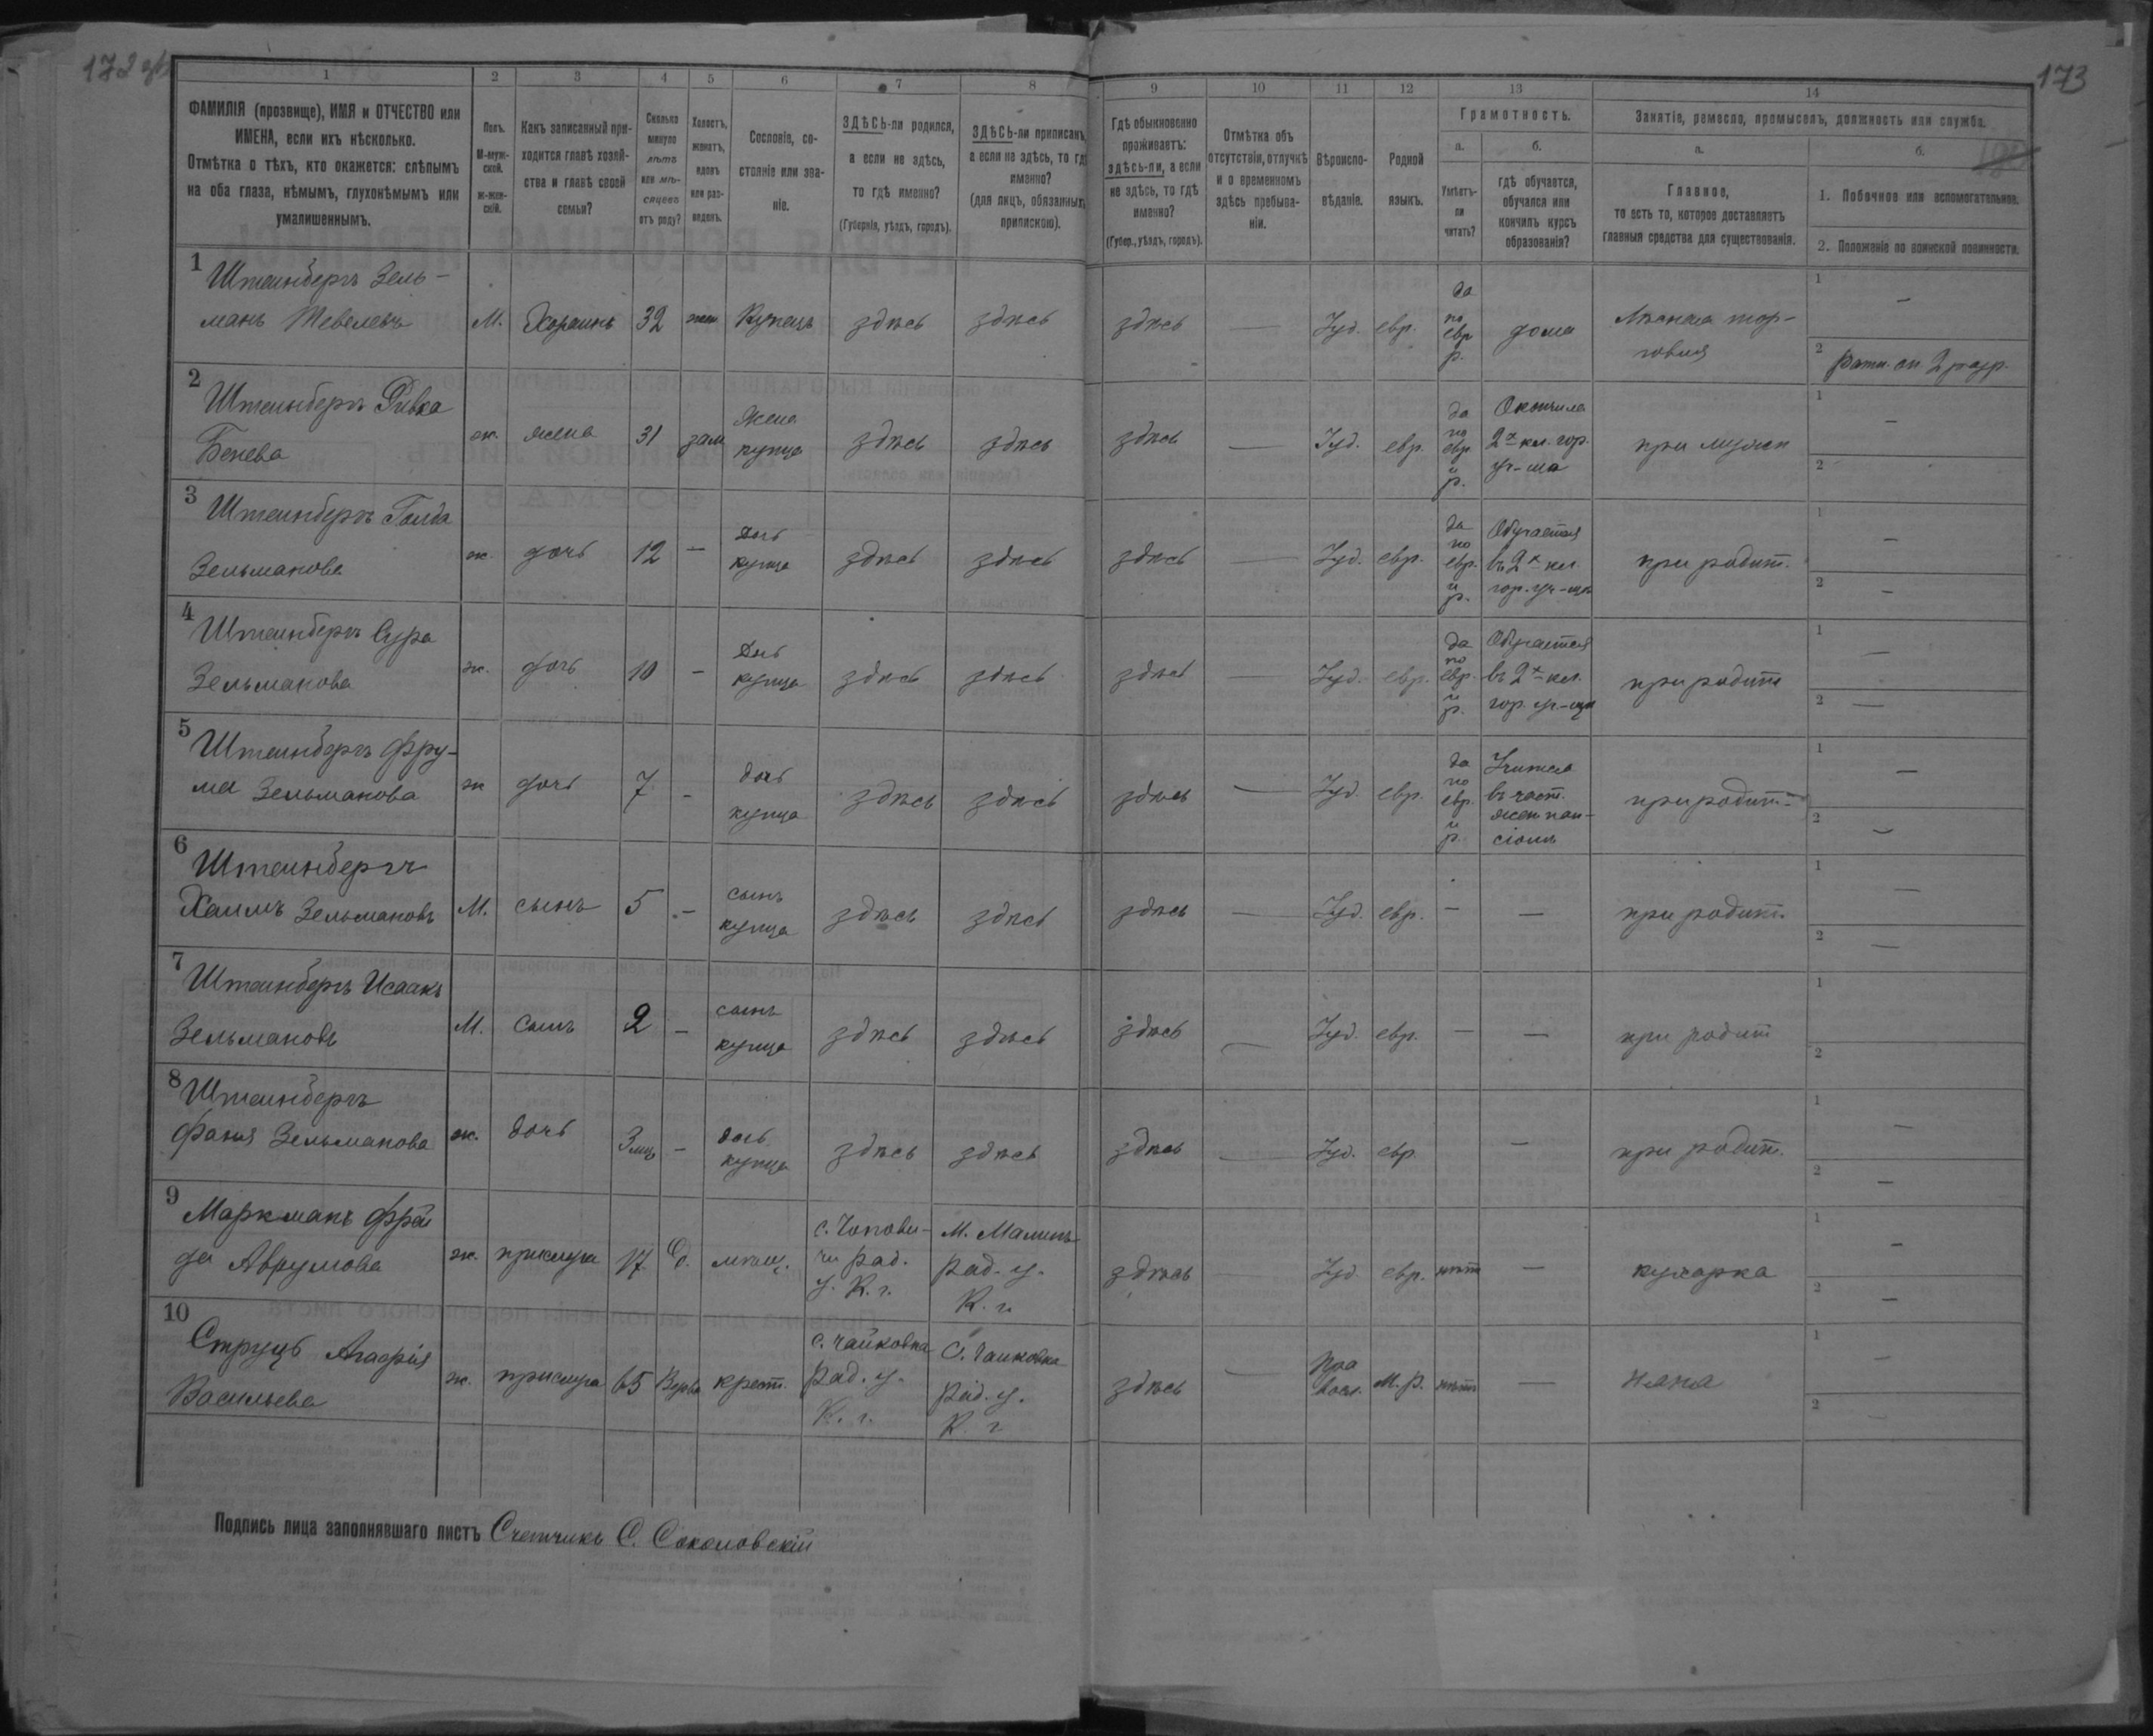 173
1
2
3
4
5
6
7
8
9
10
11
12
13
14
ФАМИЛІЯ (прозвище), ИМЯ и ОТЧЕСТВО или
ИМЕНА, если ихъ нѣсколько.
Отмѣтка о тѣхъ, кто окажется: слѣпымъ
на оба глаза, нѣмымъ, глухонѣмымъ или
умалишеннымъ.
Полъ.
М-муж-
ской.
Ж-жен-
скій.
Какъ записанный при-
ходится главѣ хозяй-
ства и главѣ своей
семьи?
Сколько
минуло
лѣтъ
или мѣ-
сяцевъ
отъ роду?
Холостъ,
женатъ,
вдовъ
или раз-
веденъ.
Сословіе, со-
стояніе или зва-
ніе.
ЗДѢСЬ-ли родился,
а если не здѣсь,
то гдѣ именно?
(Губернія, уѣздъ, городъ).
ЗДѢСЬ-ли приписанъ,
а если не здѣсь, то гдѣ
именно?
(для лицъ, обязанныхъ
припискою).
Гдѣ обыкновенно
проживаетъ:
здѣсь-ли, а если
не здѣсь, то гдѣ
именно?
(Губер., уѣздъ, городъ).
Отмѣтка объ
отсутствіи, отлучкѣ
и о временномъ
здѣсь пребыва-
ніи.
Вѣроиспо-
вѣданіе.
Родной
языкъ.
Грамотность.
а.
Умѣетъ-
ли
читать?
б.
гдѣ обучается,
обучался или
кончилъ курсъ
образованія?
Занятіе, ремесло, промыселъ, должность или служба.
а.
Главное,
то есть то, которое доставляетъ
главныя средства для существованія.
б.
1. Побочное или вспомогательное.
2. Положеніе по воинской повинности.
1 Штеинбергъ Зель-
манъ Тевелевъ М. Хозяинъ 32 жен. Купецъ здѣсь здѣсь здѣсь — Іуд. евр. да по евр р. дома Лѣсная тор-
говля 1 — 2 ратн. оп. 2 разр.
2 Штеинбергъ Ривка
Бенева ж. жена 31 зам Жена купца здѣсь здѣсь здѣсь — Іуд. евр. да по евр и р. Окончила
2х кл. гор.
уч-ща при мужѣ 1 — 2
3 Штеинбергъ Голда
Зельманова ж. дочь 12 — Дочь купца здѣсь здѣсь здѣсь — Іуд. евр. да по евр. и р. Обучается
въ 2х кл.
гор. уч-щѣ при родит. 1 — 2 —
4 Штеинбергъ Сура
Зельманова ж. дочь 10 — Дочь купца здѣсь здѣсь здѣсь — Іуд. евр. да по евр. и р. Обучается
въ 2х кл.
гор. уч-щѣ при родит 1 — 2 —
5 Штеинбергъ Фру-
ма Зельманова ж дочь 7 — дочь купца здѣсь здѣсь здѣсь — Іуд. евр. да по евр. и р. Учится
въ част.
жен пан-
сіонѣ при родит. 1 — 2 —
6 Штеинбергъ
Хаимъ Зельмановъ М. сынъ 5 — сынъ купца здѣсь здѣсь здѣсь — Іуд. евр. — — при родит. 1 — 2 —
7 Штеинбергъ Исаакъ
Зельмановъ М. сынъ 2 — сынъ купца здѣсь здѣсь здѣсь — Іуд. евр. — — при родит 1 2
8 Штеинбергъ
Фаня Зельманова ж. дочь 3 мць — дочь купца здѣсь здѣсь здѣсь — Іуд. евр — при родит. 1 — 2 —
9 Маркманъ Фрей
да Аврумова ж. прислуга 17 д. мѣщ. с. Чопови-
чи Рад.
у. К. г. М. Малинъ
Рад. у.
К. г. здѣсь — Іуд. евр. нѣт — кухарка 1 — 2 —
10 Струцъ Агафія
Васильева ж. прислуга 65 Вдова крест. с. Чайковка
Рад. у.
К. г. С. Чайковка
Рад. у.
К. г здѣсь — Пра
восл. М. р. нѣтъ — няня 1 — 2 —
Подпись лица заполнявшаго листъ Счетчикъ С. Соколовскій